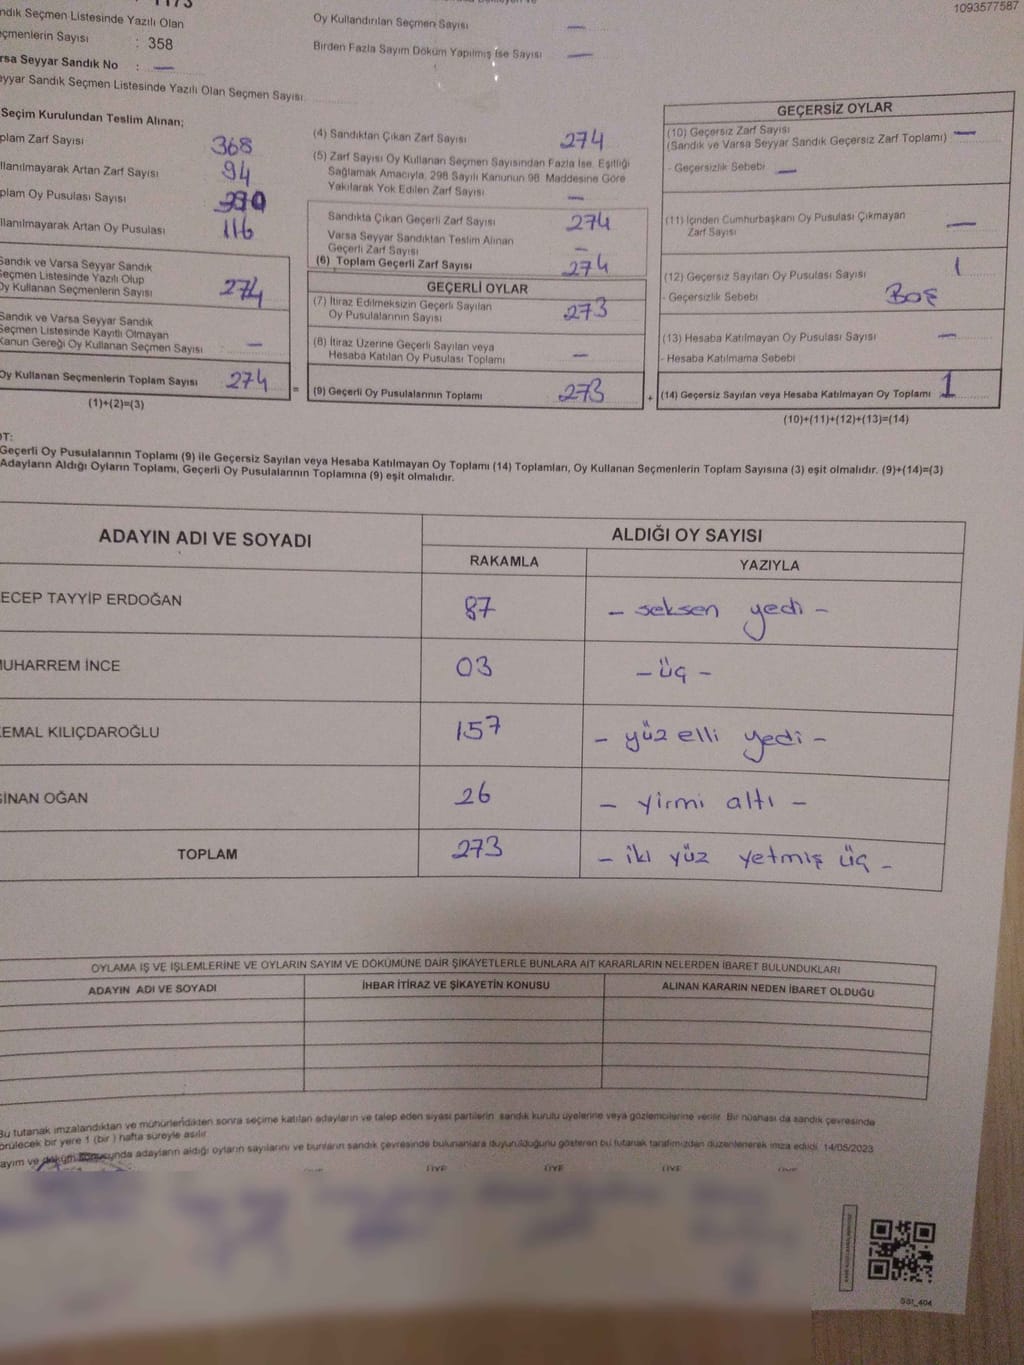 1093577587
ndık Seçmen Listesinde Yazılı Olan
çmenlerin Sayısı : 358
rsa Seyyar Sandık No : —
eyyar Sandık Seçmen Listesinde Yazılı Olan Seçmen Sayısı
Oy Kullandırılan Seçmen Sayısı —
Birden Fazla Sayım Döküm Yapılmış İse Sayısı —
Seçim Kurulundan Teslim Alınan;
plam Zarf Sayısı 368
llanılmayarak Artan Zarf Sayısı 94
plam Oy Pusulası Sayısı
llanılmayarak Artan Oy Pusulası 116
Sandık ve Varsa Seyyar Sandık
Seçmen Listesinde Yazılı Olup
Oy Kullanan Seçmenlerin Sayısı 274
Sandık ve Varsa Seyyar Sandık
Seçmen Listesinde Kayıtlı Olmayan
Kanun Gereği Oy Kullanan Seçmen Sayısı : —
Oy Kullanan Seçmenlerin Toplam Sayısı 274 =
(1)+(2)=(3)
(4) Sandıktan Çıkan Zarf Sayısı 274
(5) Zarf Sayısı Oy Kullanan Seçmen Sayısından Fazla İse, Eşitliği
Sağlamak Amacıyla, 298 Sayılı Kanunun 98. Maddesine Göre
Yakılarak Yok Edilen Zarf Sayısı —
Sandıkta Çıkan Geçerli Zarf Sayısı 274
Varsa Seyyar Sandıktan Teslim Alınan
Geçerli Zarf Sayısı —
(6) Toplam Geçerli Zarf Sayısı 274
GEÇERLİ OYLAR
(7) İtiraz Edilmeksizin Geçerli Sayılan
Oy Pusulalarının Sayısı 273
(8) İtiraz Üzerine Geçerli Sayılan veya
Hesaba Katılan Oy Pusulası Toplamı —
(9) Geçerli Oy Pusulalarının Toplamı 273 +
GEÇERSİZ OYLAR
(10) Geçersiz Zarf Sayısı —
(Sandık ve Varsa Seyyar Sandık Geçersiz Zarf Toplamı)
- Geçersizlik Sebebi —
(11) İçinden Cumhurbaşkanı Oy Pusulası Çıkmayan
Zarf Sayısı —
(12) Geçersiz Sayılan Oy Pusulası Sayısı 1
- Geçersizlik Sebebi BOŞ
(13) Hesaba Katılmayan Oy Pusulası Sayısı —
- Hesaba Katılmama Sebebi
(14) Geçersiz Sayılan veya Hesaba Katılmayan Oy Toplamı 1
(10)+(11)+(12)+(13)=(14)
OT:
Geçerli Oy Pusulalarının Toplamı (9) ile Geçersiz Sayılan veya Hesaba Katılmayan Oy Toplamı (14) Toplamları, Oy Kullanan Seçmenlerin Toplam Sayısına (3) eşit olmalıdır. (9)+(14)=(3)
Adayların Aldığı Oyların Toplamı, Geçerli Oy Pusulalarının Toplamına (9) eşit olmalıdır.
ADAYIN ADI VE SOYADI ALDIĞI OY SAYISI
RAKAMLA YAZIYLA
ECEP TAYYİP ERDOĞAN 87 – seksen yedi –
MUHARREM İNCE 03 – üç –
EMAL KILIÇDAROĞLU 157 – yüz elli yedi –
SİNAN OĞAN 26 – yirmi altı –
TOPLAM 273 – iki yüz yetmiş üç –
OYLAMA İŞ VE İŞLEMLERİNE VE OYLARIN SAYIM VE DÖKÜMÜNE DAİR ŞİKAYETLERLE BUNLARA AİT KARARLARIN NELERDEN İBARET BULUNDUKLARI
ADAYIN ADI VE SOYADI İHBAR İTİRAZ VE ŞİKAYETİN KONUSU ALINAN KARARIN NEDEN İBARET OLDUĞU
Bu tutanak imzalandıktan ve mühürlendikten sonra seçime katılan adayların ve talep eden siyasi partilerin sandık kurulu üyelerine veya gözlemcilerine verilir. Bir nüshası da sandık çevresinde
örülecek bir yere 1 (bir) hafta süreyle asılır.
ayım ve döküm sonucunda adayların aldığı oyların sayılarını ve bunların sandık çevresinde bulunanlara duyurulduğunu gösteren bu tutanak tarafımızdan düzenlenerek imza edildi. 14/05/2023
ÜYE ÜYE ÜYE
SS1_404